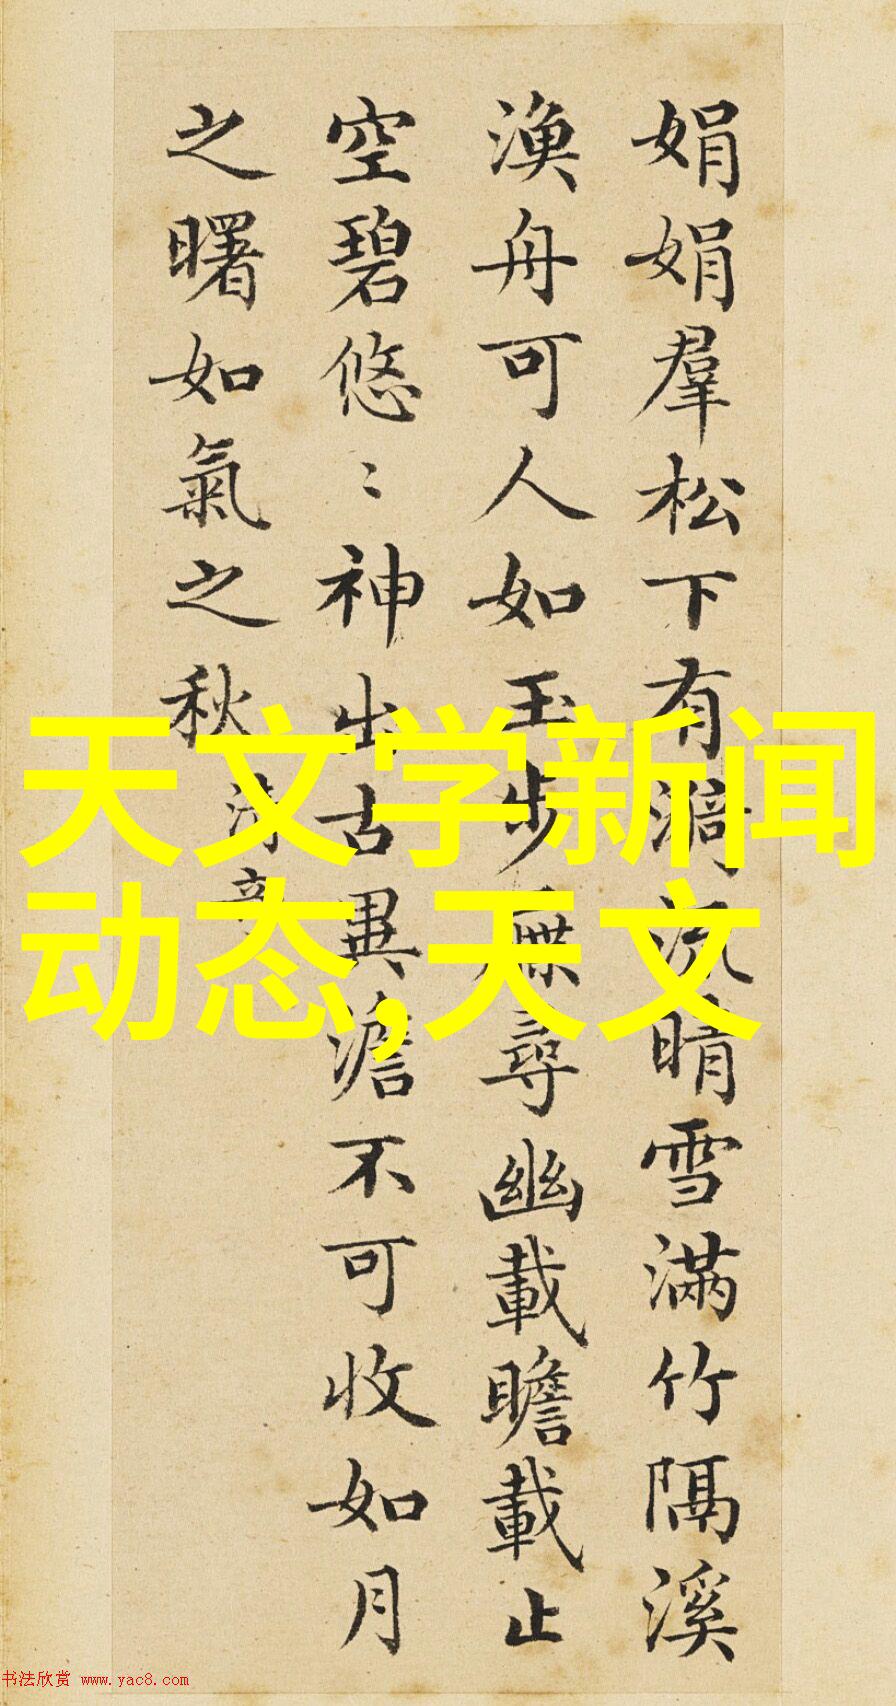 娟娟羣松下有漪流晴雪滿竹隔溪
漁舟可人如玉步屧尋幽載瞻載止
空碧悠〻神出古異澹不可收如月
之曙如氣之秋
清奇
天文学新闻
动态,天文
书法欣赏 www.yac8.com